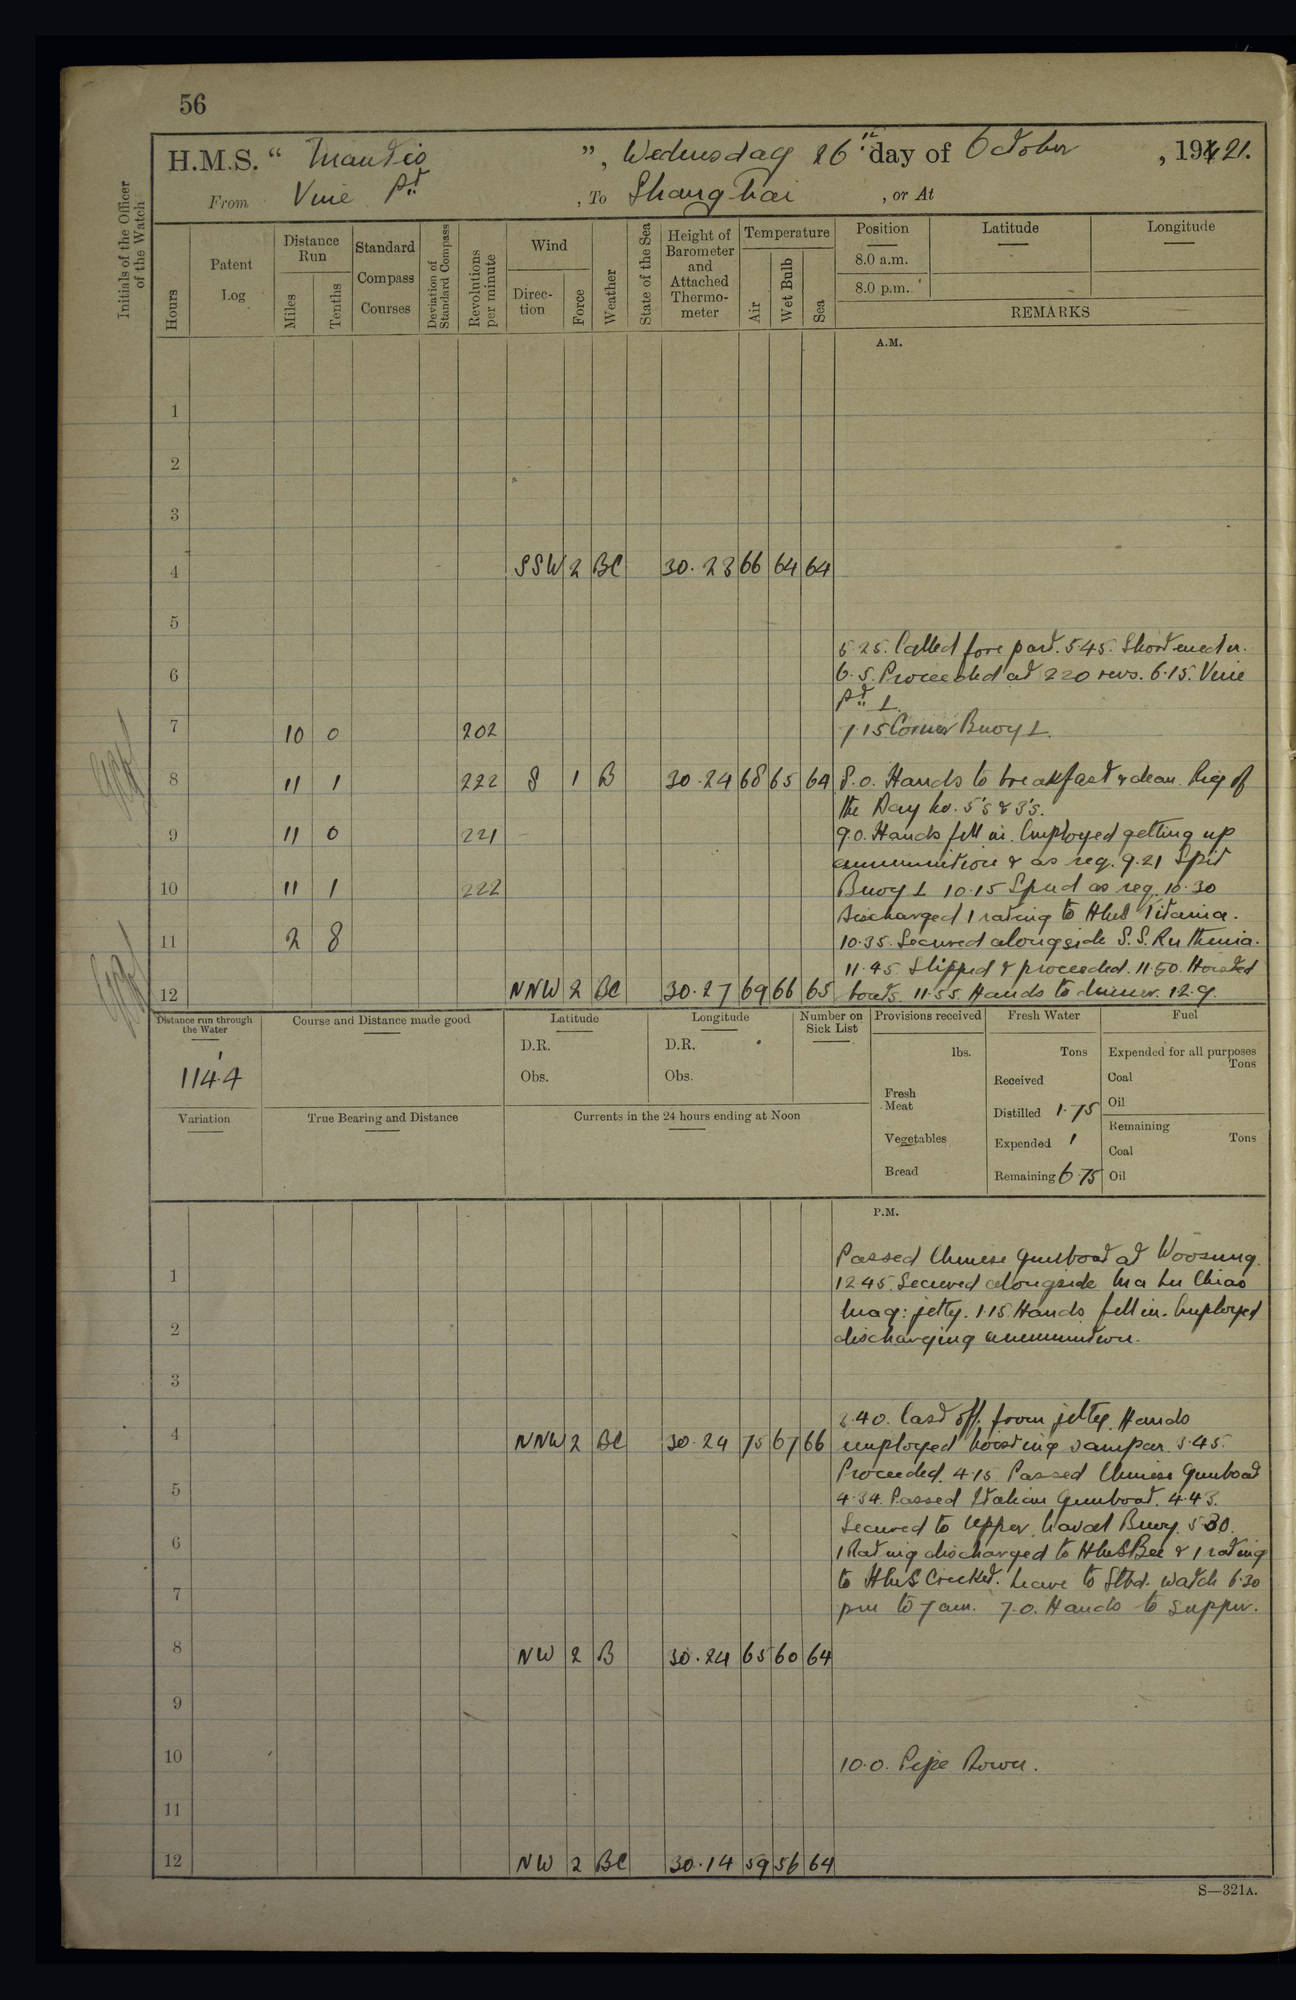 56
H.M.S. " Mantis ", Wednesday 26th day of October, 1921.
From Vine Pt. , To Shanghai , or At
Initials of the Officer of the Watch
Hours
Patent Log
Distance Run
Miles
Tenths
Standard Compass Courses
Deviation of Standard Compass
Revolutions per minute
Wind
Direction
Force
Weather
State of the Sea
Height of Barometer and Attached Thermometer
Temperature
Air
Wet Bulb
Sea
Position Latitude Longitude
8.0 a.m.
8.0 p.m.
REMARKS
A.M.
1
2
3
4 SSW 2 BC 30.23 66 64 64
5
5.25. Called fore part. 5.45. Shortened in.
6 6.5. Proceeded at 220 revs. 6.15. Vine
Pt. ⊥
7 10 0 202 7.15 Corner Buoy ⊥.
8 11 1 222 S 1 B 30.24 68 65 64 8.0. Hands to breakfast & clean. Rig of
the Day No. 5's & 3's.
9 11 0 221 9.0. Hands fell in. Employed getting up
ammunition & as req. 9.21 Spit
10 11 1 222 Buoy ⊥ 10.15 Speed as req. 10.30
Discharged 1 rating to HMS Titania.
11 2 8 10.35. Secured alongside S.S. Ruthenia.
11.45. Slipped & proceeded. 11.50. Hoisted
12 NNW 2 BC 30.27 69 66 65 boats. 11.55. Hands to dinner. 12.9.
Distance run through the Water
114.4
Variation
Course and Distance made good
True Bearing and Distance
Latitude
D.R.
Obs.
Longitude
D.R.
Obs.
Currents in the 24 hours ending at Noon
Number on Sick List
Provisions received
lbs.
Fresh Meat
Vegetables
Bread
Fresh Water
Tons
Received
Distilled 1.75
Expended 1
Remaining 6.75
Fuel
Expended for all purposes
Tons
Coal
Oil
Remaining
Tons
Coal
Oil
P.M.
Passed Chinese Gunboat at Woosung.
1 12.45. Secured alongside Ma Lu Chiao
Mag: jetty. 1.15. Hands fell in. Employed
2 discharging ammunition.
3
3.40. Cast off from jetty. Hands
4 NNW 2 BC 30.24 75 67 66 employed hoisting sampan. 3.45.
Proceeded. 4.15 Passed Chinese Gunboat
5 4.34. Passed Italian Gunboat. 4.43.
Secured to Upper Naval Buoy. 5.30.
6 1 Rating discharged to HMS Bee & 1 rating
to HMS Cricket. Leave to Stbd. watch 6.30
7 pm to 7 am. 7.0. Hands to supper.
8 NW 2 B 30.24 65 60 64
9
10 10.0. Pipe Down.
11
12 NW 2 BC 30.14 59 56 64
S—321A.